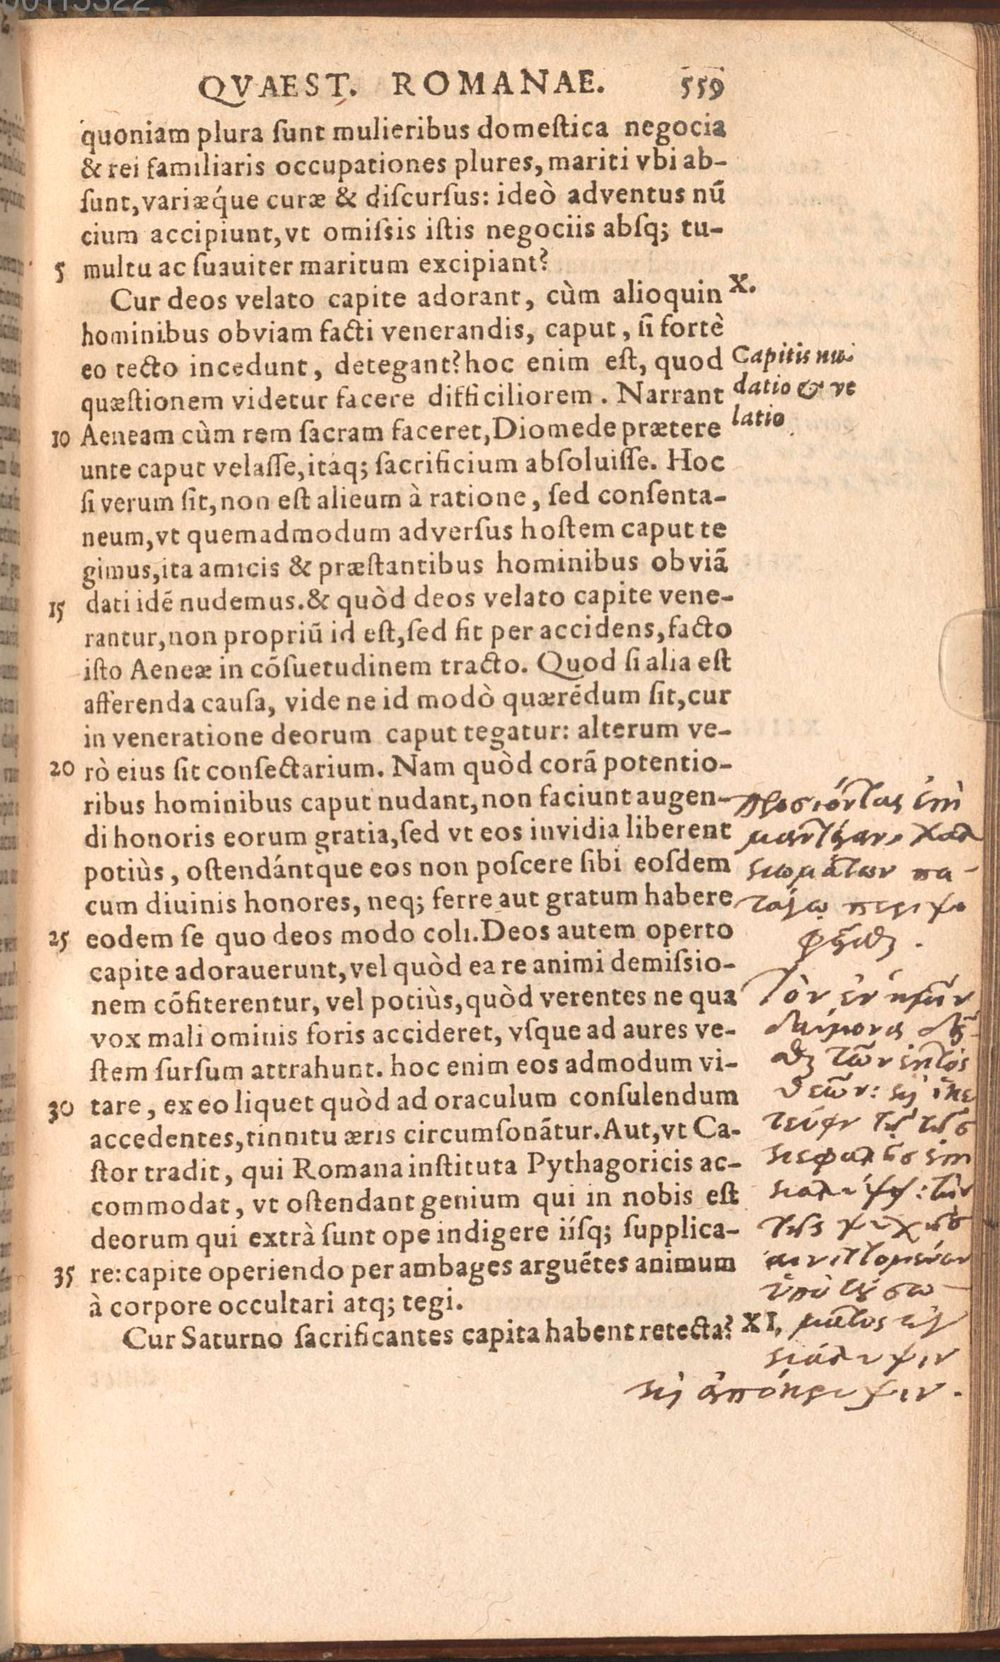 00115322
QVAEST. ROMANAE. 559
quoniam plura sunt mulieribus domestica negocia
& rei familiaris occupationes plures, mariti vbi ab-
sunt, variæq́ue curæ & discursus: ideò adventus nũ
cium accipiunt, vt omissis istis negociis absq; tu-
5 multu ac suauiter maritum excipiant?
Cur deos velato capite adorant, cùm alioquin X.
hominibus obviam facti venerandis, caput, si fortè
eo tecto incedunt, detegant? hoc enim est, quod Capitis nu-
quæstionem videtur facere difficiliorem. Narrant datio & ve
10 Aeneam cùm rem sacram faceret, Diomede prætere latio.
unte caput velasse, itaq; sacrificium absoluisse. Hoc
si verum sit, non est alieum à ratione, sed consenta-
neum, vt quemadmodum adversus hostem caput te
gimus, ita amicis & præstantibus hominibus obviã
15 dati idẽ nudemus. & quòd deos velato capite vene-
rantur, non propriũ id est, sed fit per accidens, facto
isto Aeneæ in cõsuetudinem tracto. Quod si alia est
afferenda causa, vide ne id modò quærẽdum sit, cur
in veneratione deorum caput tegatur: alterum ve-
20 rò eius sit consectarium. Nam quòd corã potentio-
ribus hominibus caput nudant, non faciunt augen-
di honoris eorum gratia, sed vt eos invidia liberent
potiùs, ostendántque eos non poscere sibi eosdem
cum diuinis honores, neq; ferre aut gratum habere
25 eodem se quo deos modo coli. Deos autem operto
capite adorauerunt, vel quòd ea re animi demissio-
nem cõfiterentur, vel potiùs, quòd verentes ne qua
vox mali ominis foris accideret, vsque ad aures ve-
stem sursum attrahunt. hoc enim eos admodum vi-
30 tare, ex eo liquet quòd ad oraculum consulendum
accedentes, tinnitu æris circumsonãtur. Aut, vt Ca-
stor tradit, qui Romana instituta Pythagoricis ac-
commodat, vt ostendant genium qui in nobis est
deorum qui extrà sunt ope indigere iísq; supplica-
35 re: capite operiendo per ambages arguẽtes animum
à corpore occultari atq; tegi.
Cur Saturno sacrificantes capita habent retecta? XI.
προσιόντας ἐπὶ
μαντείαν, χαλ
κωμάτων πα-
τάγῳ περιψο
φεῖσθαι.
Τὸν ἐν ἡμῖν
δαίμονα δεῖ-
σθαι τῶν ἐκτὸς
θεῶν: καὶ ἱκε
τεύειν
τῆς κεφαλῆς ἐπι
καλύψει: τὴν
τῆς ψυχῆς
αἰνιττομένων
ὑπὸ τοῦ σώ-
ματος ἐγ
κάλυψιν
καὶ ἀπόκρυψιν.